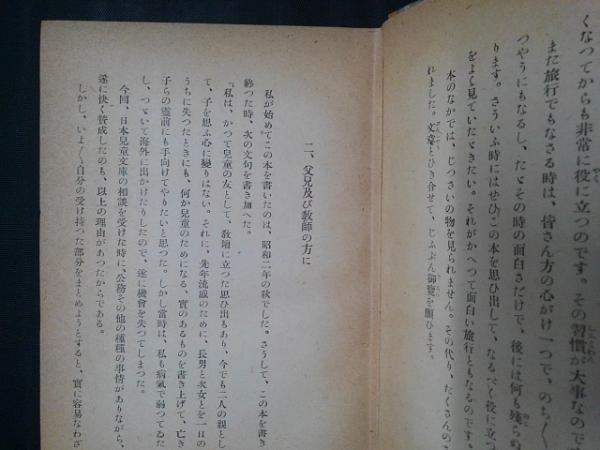 くなつてからも非常に役に立つのです。その習慣が大事なので
また旅行でもなさる時は、皆さん方の心がけ一つで、のちく
つやうにもなるし、たゞその時の面白さだけで、後には何も殘らぬ
ります。さういふ時にはぜひこの本を思ひ出して、なるべく役に立つ
をよく見ていたゞきたい。それがかへつて面白い旅行ともなるのです。
本のなかでは、じつさいの物を見られません。その代り、たくさんの
れました。文章とひき合せて、じふぶん御覽を願ひます。
二、父兄及び教師の方に
私が始めてこの本を書いたのは、昭和二年の秋でした。さうして、この本を書き
終つた時、次の文句を書き加へた。
「私は、かつて兒童の友として、教壇に立つた思ひ出もあり、今でも二人の親とし
て、子を思ふ心に變りはない。それに、先年流感のために、長男と次女とを一日の
うちに失つたときにも、何か兒童のためになる、實のあるものを書き上げて、亡き
子らの靈前にも手向けてやりたいと思つた。しかし當時は、私も病氣で弱つてゐた
し、つゞいて海外に出かけたりしたので、遂に機會を失つてしまつた。
今囘、日本兒童文庫の相談を受けた時に、公務その他の種種の事情がありながら、
遂に快く贊成したのも、以上の理由があつたからである。
しかし、いよく自分の受け持つた部分をまとめようとすると、實に容易なわざ